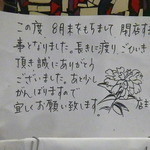 この度 8月末をもちまして 閉店する
事となりました。長きに渡り、ごひいき
頂き誠にありがとう
ございました。あと少し
がんばりますので
宜しくお願い致します
店主